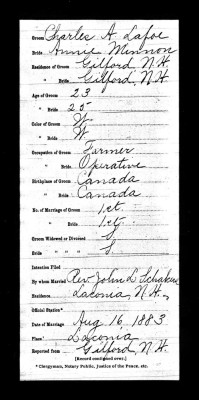 Groom Charles A. Lafoe
Bride Annie Minnon
Residence of Groom Gilford, N.H.
" Bride Gilford, N.H.
Age of Groom 23
" Bride 25
Color of Groom W.
" Bride W.
Occupation of Groom Farmer
" Bride Operative
Birthplace of Groom Canada
" Bride Canada
No. of Marriage of Groom 1st
" Bride 1st
Groom Widowed or Divorced S
Bride " " " S.
Intention Filed
By whom Married Rev. John L.
Residence Laconia, N.H.
Official Station*
Date of Marriage Aug. 16, 1883
Place Laconia
Reported from Gilford, N.H.
[Record continued over.]
* Clergyman, Notary Public, Justice of the Peace, etc.